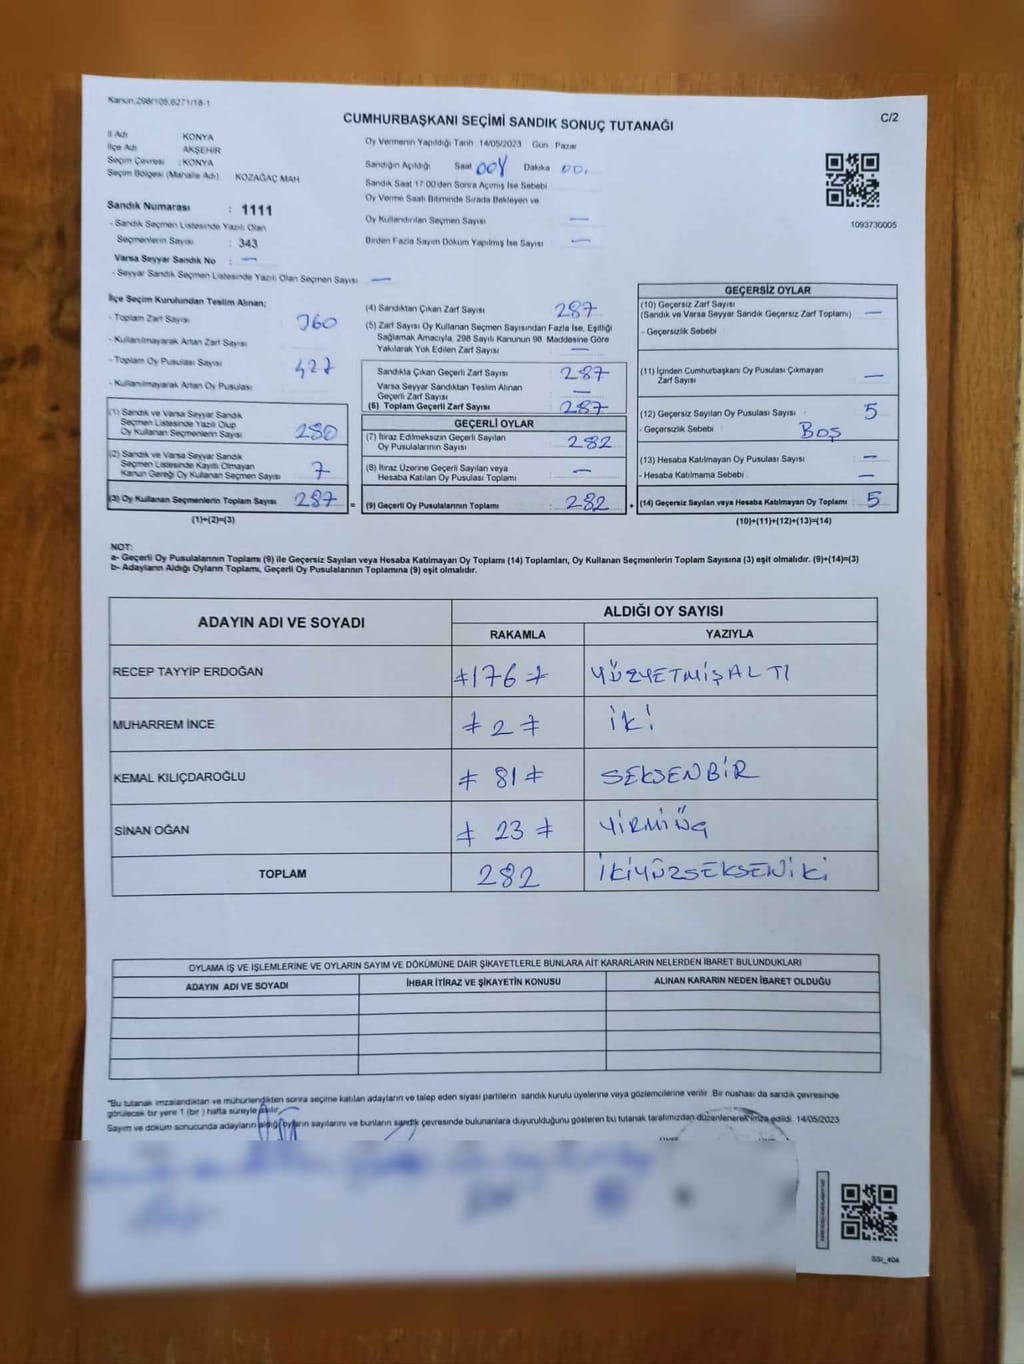 Kanun.298/105,6271/18-1
CUMHURBAŞKANI SEÇİMİ SANDIK SONUÇ TUTANAĞI
C/2
İl Adı KONYA
İlçe Adı AKŞEHİR
Seçim Çevresi : KONYA
Seçim Bölgesi (Mahalle Adı) KOZAĞAÇ MAH
Oy Vermenin Yapıldığı Tarih 14/05/2023 Gün Pazar
Sandığın Açıldığı Saat Dakika 00
Sandık Saat 17:00'den Sonra Açılmış İse Sebebi
Oy Verme Saati Bitiminde Sırada Bekleyen ve
Oy Kullandırılan Seçmen Sayısı —
Birden Fazla Sayım Döküm Yapılmış İse Sayısı —
1093730005
Sandık Numarası : 1111
- Sandık Seçmen Listesinde Yazılı Olan
Seçmenlerin Sayısı : 343
Varsa Seyyar Sandık No : —
- Seyyar Sandık Seçmen Listesinde Yazılı Olan Seçmen Sayısı —
İlçe Seçim Kurulundan Teslim Alınan;
- Toplam Zarf Sayısı 360
- Kullanılmayarak Artan Zarf Sayısı
- Toplam Oy Pusulası Sayısı 427
- Kullanılmayarak Artan Oy Pusulası
(1) Sandık ve Varsa Seyyar Sandık
Seçmen Listesinde Yazılı Olup
Oy Kullanan Seçmenlerin Sayısı 280
(2) Sandık ve Varsa Seyyar Sandık
Seçmen Listesinde Kayıtlı Olmayan
Kanun Gereği Oy Kullanan Seçmen Sayısı 7
(3) Oy Kullanan Seçmenlerin Toplam Sayısı 287 =
(1)+(2)=(3)
(4) Sandıktan Çıkan Zarf Sayısı 287
(5) Zarf Sayısı Oy Kullanan Seçmen Sayısından Fazla İse, Eşitliği
Sağlamak Amacıyla, 298 Sayılı Kanunun 98. Maddesine Göre
Yakılarak Yok Edilen Zarf Sayısı —
Sandıkta Çıkan Geçerli Zarf Sayısı 287
Varsa Seyyar Sandıktan Teslim Alınan
Geçerli Zarf Sayısı —
(6) Toplam Geçerli Zarf Sayısı 287
GEÇERLİ OYLAR
(7) İtiraz Edilmeksizin Geçerli Sayılan
Oy Pusulalarının Sayısı 282
(8) İtiraz Üzerine Geçerli Sayılan veya
Hesaba Katılan Oy Pusulası Toplamı —
(9) Geçerli Oy Pusulalarının Toplamı : 282 +
GEÇERSİZ OYLAR
(10) Geçersiz Zarf Sayısı
(Sandık ve Varsa Seyyar Sandık Geçersiz Zarf Toplamı) —
- Geçersizlik Sebebi
(11) İçinden Cumhurbaşkanı Oy Pusulası Çıkmayan
Zarf Sayısı —
(12) Geçersiz Sayılan Oy Pusulası Sayısı 5
- Geçersizlik Sebebi : BOŞ
(13) Hesaba Katılmayan Oy Pusulası Sayısı —
- Hesaba Katılmama Sebebi : —
(14) Geçersiz Sayılan veya Hesaba Katılmayan Oy Toplamı : 5
(10)+(11)+(12)+(13)=(14)
NOT:
a- Geçerli Oy Pusulalarının Toplamı (9) ile Geçersiz Sayılan veya Hesaba Katılmayan Oy Toplamı (14) Toplamları, Oy Kullanan Seçmenlerin Toplam Sayısına (3) eşit olmalıdır. (9)+(14)=(3)
b- Adayların Aldığı Oyların Toplamı, Geçerli Oy Pusulalarının Toplamına (9) eşit olmalıdır.
ADAYIN ADI VE SOYADI
ALDIĞI OY SAYISI
RAKAMLA YAZIYLA
RECEP TAYYİP ERDOĞAN ≠176≠ YÜZYETMİŞALTI
MUHARREM İNCE ≠2≠ İKİ
KEMAL KILIÇDAROĞLU ≠81≠ SEKSENBİR
SİNAN OĞAN ≠23≠ YİRMİÜÇ
TOPLAM 282 İKİYÜZSEKSENİKİ
OYLAMA İŞ VE İŞLEMLERİNE VE OYLARIN SAYIM VE DÖKÜMÜNE DAİR ŞİKAYETLERLE BUNLARA AİT KARARLARIN NELERDEN İBARET BULUNDUKLARI
ADAYIN ADI VE SOYADI İHBAR İTİRAZ VE ŞİKAYETİN KONUSU ALINAN KARARIN NEDEN İBARET OLDUĞU
"Bu tutanak imzalandıktan ve mühürlendikten sonra seçime katılan adayların ve talep eden siyasi partilerin sandık kurulu üyelerine veya gözlemcilerine verilir. Bir nüshası da sandık çevresinde
görülecek bir yere 1 (bir ) hafta süreyle asılır.
Sayım ve döküm sonucunda adayların aldığı oyların sayılarını ve bunların sandık çevresinde bulunanlara duyurulduğunu gösteren bu tutanak tarafımızdan düzenlenerek imza edildi. 14/05/2023
SSI_404